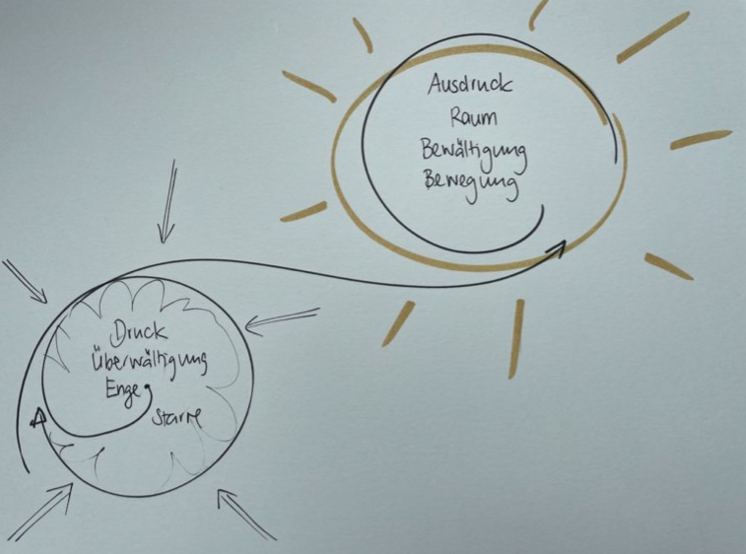 Ausdruck
Raum
Bewältigung
Bewegung
Druck
Überwältigung
Enge
Starre